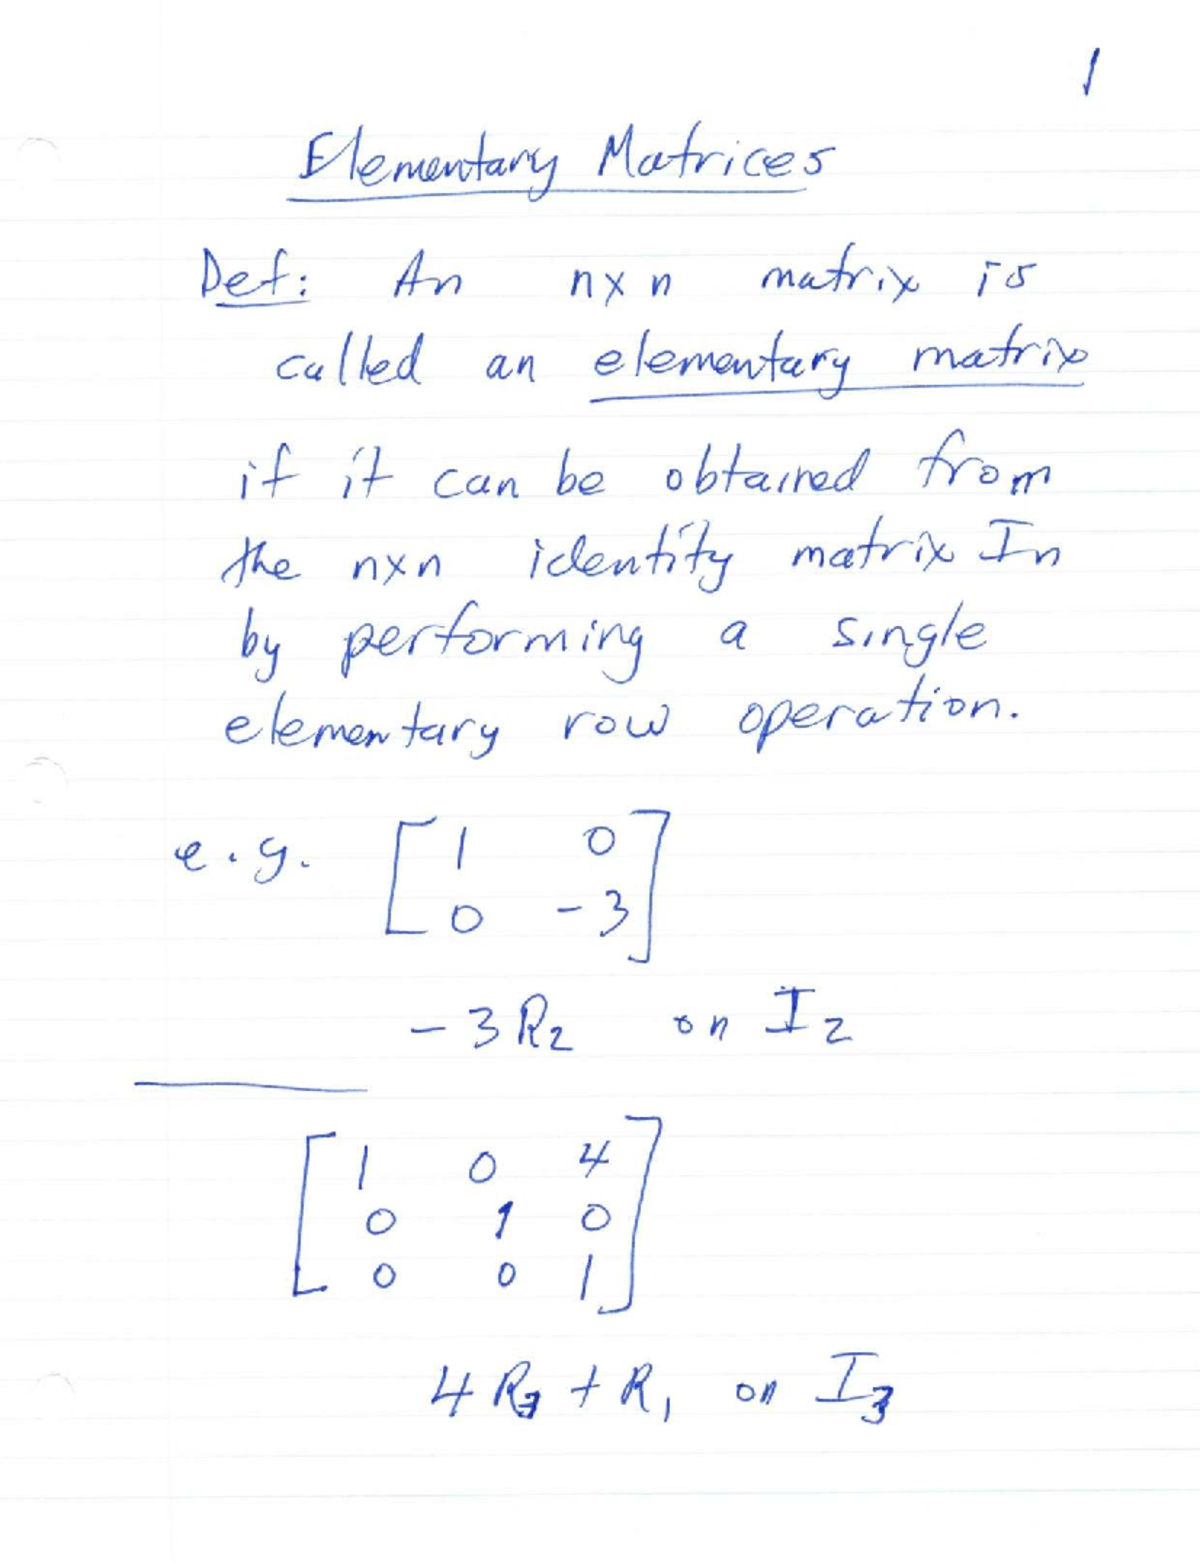 1
Elementary Matrices
Def: An n x n matrix is
called an elementary matrix
if it can be obtained from
the nxn identity matrix In
by performing a single
elementary row operation.
e.g. [ 1 0
0 -3 ]
-3R2 on I2
[ 1 0 4
0 1 0
0 0 1 ]
4R3 + R1 on I3